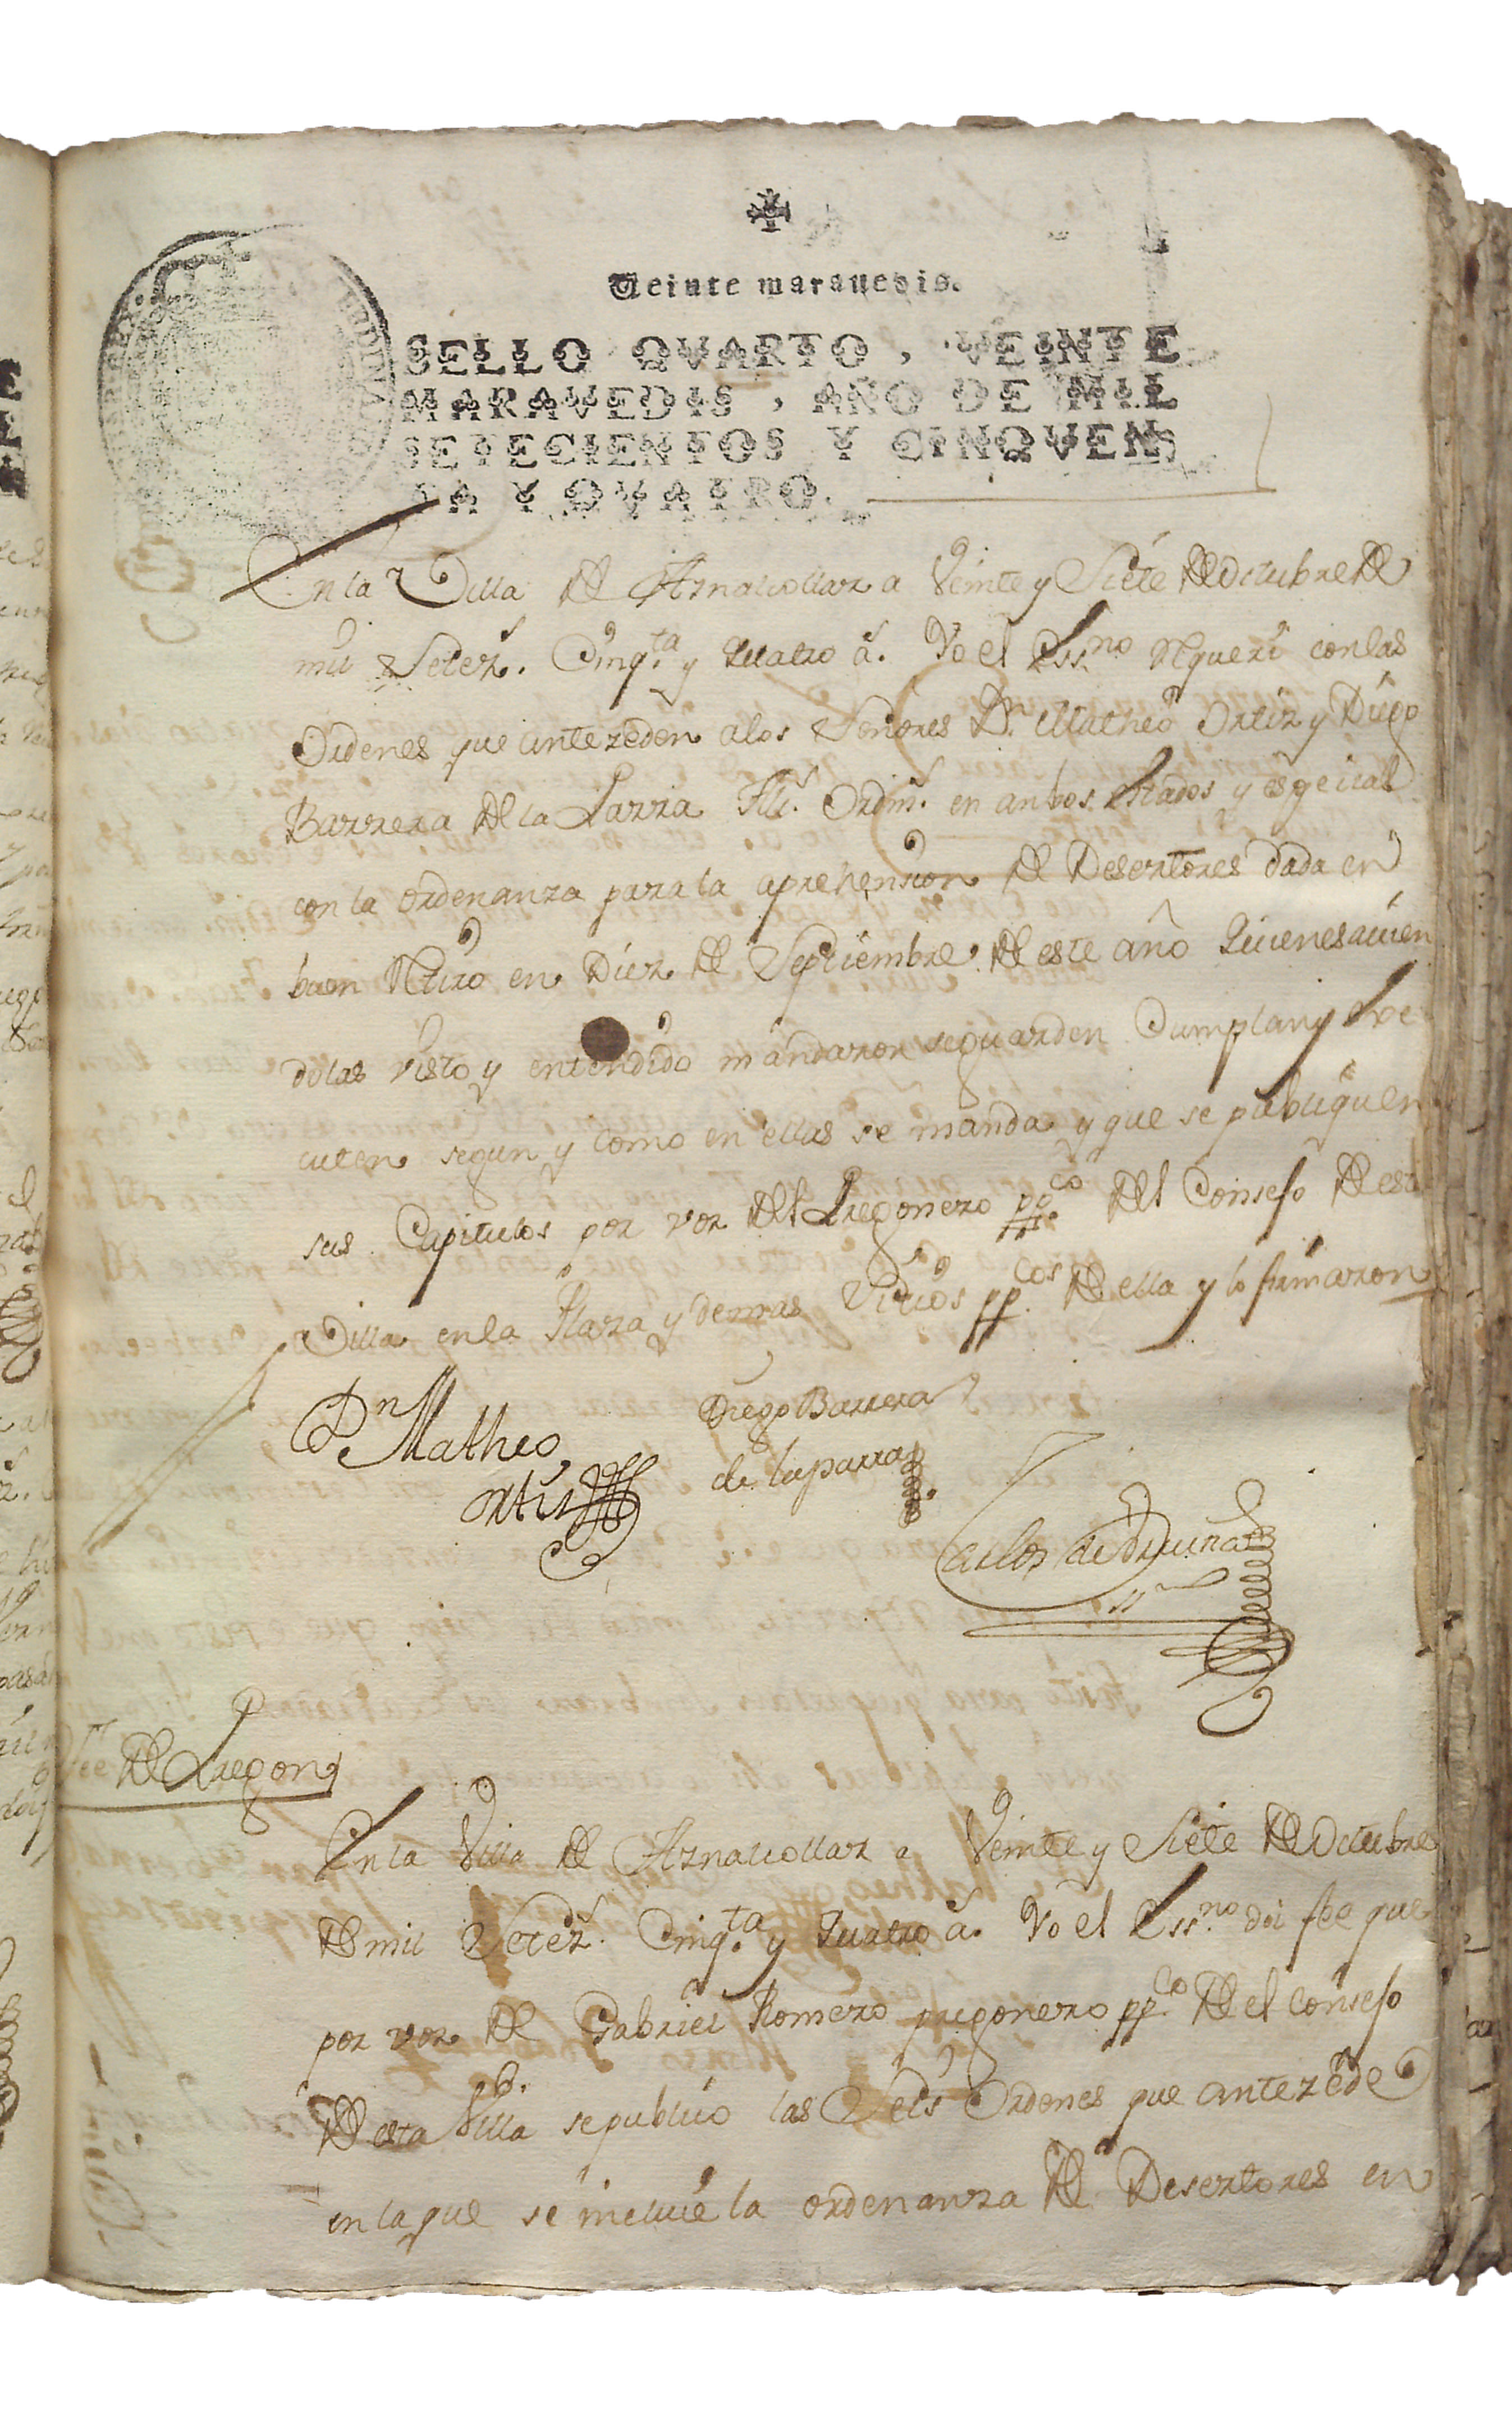 Veinte maravedis.
SELLO QVARTO, VEINTE
MARAVEDIS, AÑO DE MIL
SETECIENTOS Y CINQVEN
TA Y QVATRO.
En la Villa de Aznalcollar a Veinte y Siete de Octubre de
mil Setez.s Cinq.ta y Quatro a.s Yo el Ess.no Requeri con las
Ordenes que antezeden a los Señores D.n Matheo Ortiz y Diego
Barrera de la Parra All.s Ordin.s en anbos estados y espeical
con la ordenanza para la aprehension de Desertores dada en
buen Retiro en Diez de Septiembre de este año Quienes avien
dolas visto y entendido mandaron se guarden Cumplan y Exe
cuten segun y como en ellas se manda y que se publiquen
sus Capitulos por voz del Pregonero pp.co del Consejo de esta
Villa en la Plaza y demas Sitios pp.cos de ella y lo firmaron
D.n Matheo
Ortiz
Diego Barrera
de la parra
Carlos de
ss.no
Fee de Pregon
En la Villa de Aznalcollar a Veinte y Siete de Octubre
de mil Setez.s Cinq.ta y Quatro a.s Yo el Ess.no doi fee que
por voz de Gabriel Romero pregonero pp.co de el Consejo
de esta Villa se publico las Seis Ordenes que antezede
en la que se incluie la ordenanza de Desertores en